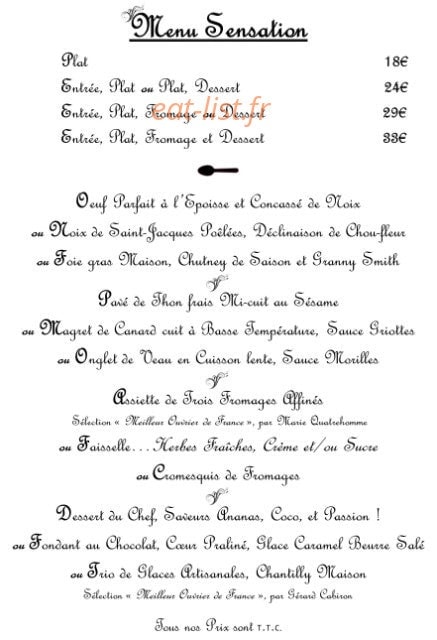 Menu Sensation
Plat 18€
Entrée, Plat ou Plat, Dessert 24€
eat-list.fr
Entrée, Plat, Fromage ou Dessert 29€
Entrée, Plat, Fromage et Dessert 33€
Oeuf Parfait à l'Epoisse et Concassé de Noix
ou Noix de Saint-Jacques Poêlées, Déclinaison de Chou-fleur
ou Foie gras Maison, Chutney de Saison et Granny Smith
Pavé de Thon frais Mi-cuit au Sésame
ou Magret de Canard cuit à Basse Température, Sauce Griottes
ou Onglet de Veau en Cuisson lente, Sauce Morilles
Assiette de Trois Fromages Affinés
Sélection « Meilleur Ouvrier de France », par Marie Quatrehomme
ou Faisselle...Herbes Fraîches, Crème et/ou Sucre
ou Cromesquis de Fromages
Dessert du Chef, Saveurs Ananas, Coco, et Passion !
ou Fondant au Chocolat, Cœur Praliné, Glace Caramel Beurre Salé
ou Trio de Glaces Artisanales, Chantilly Maison
Sélection « Meilleur Ouvrier de France », par Gérard Cabiron
Tous nos Prix sont T.T.C.